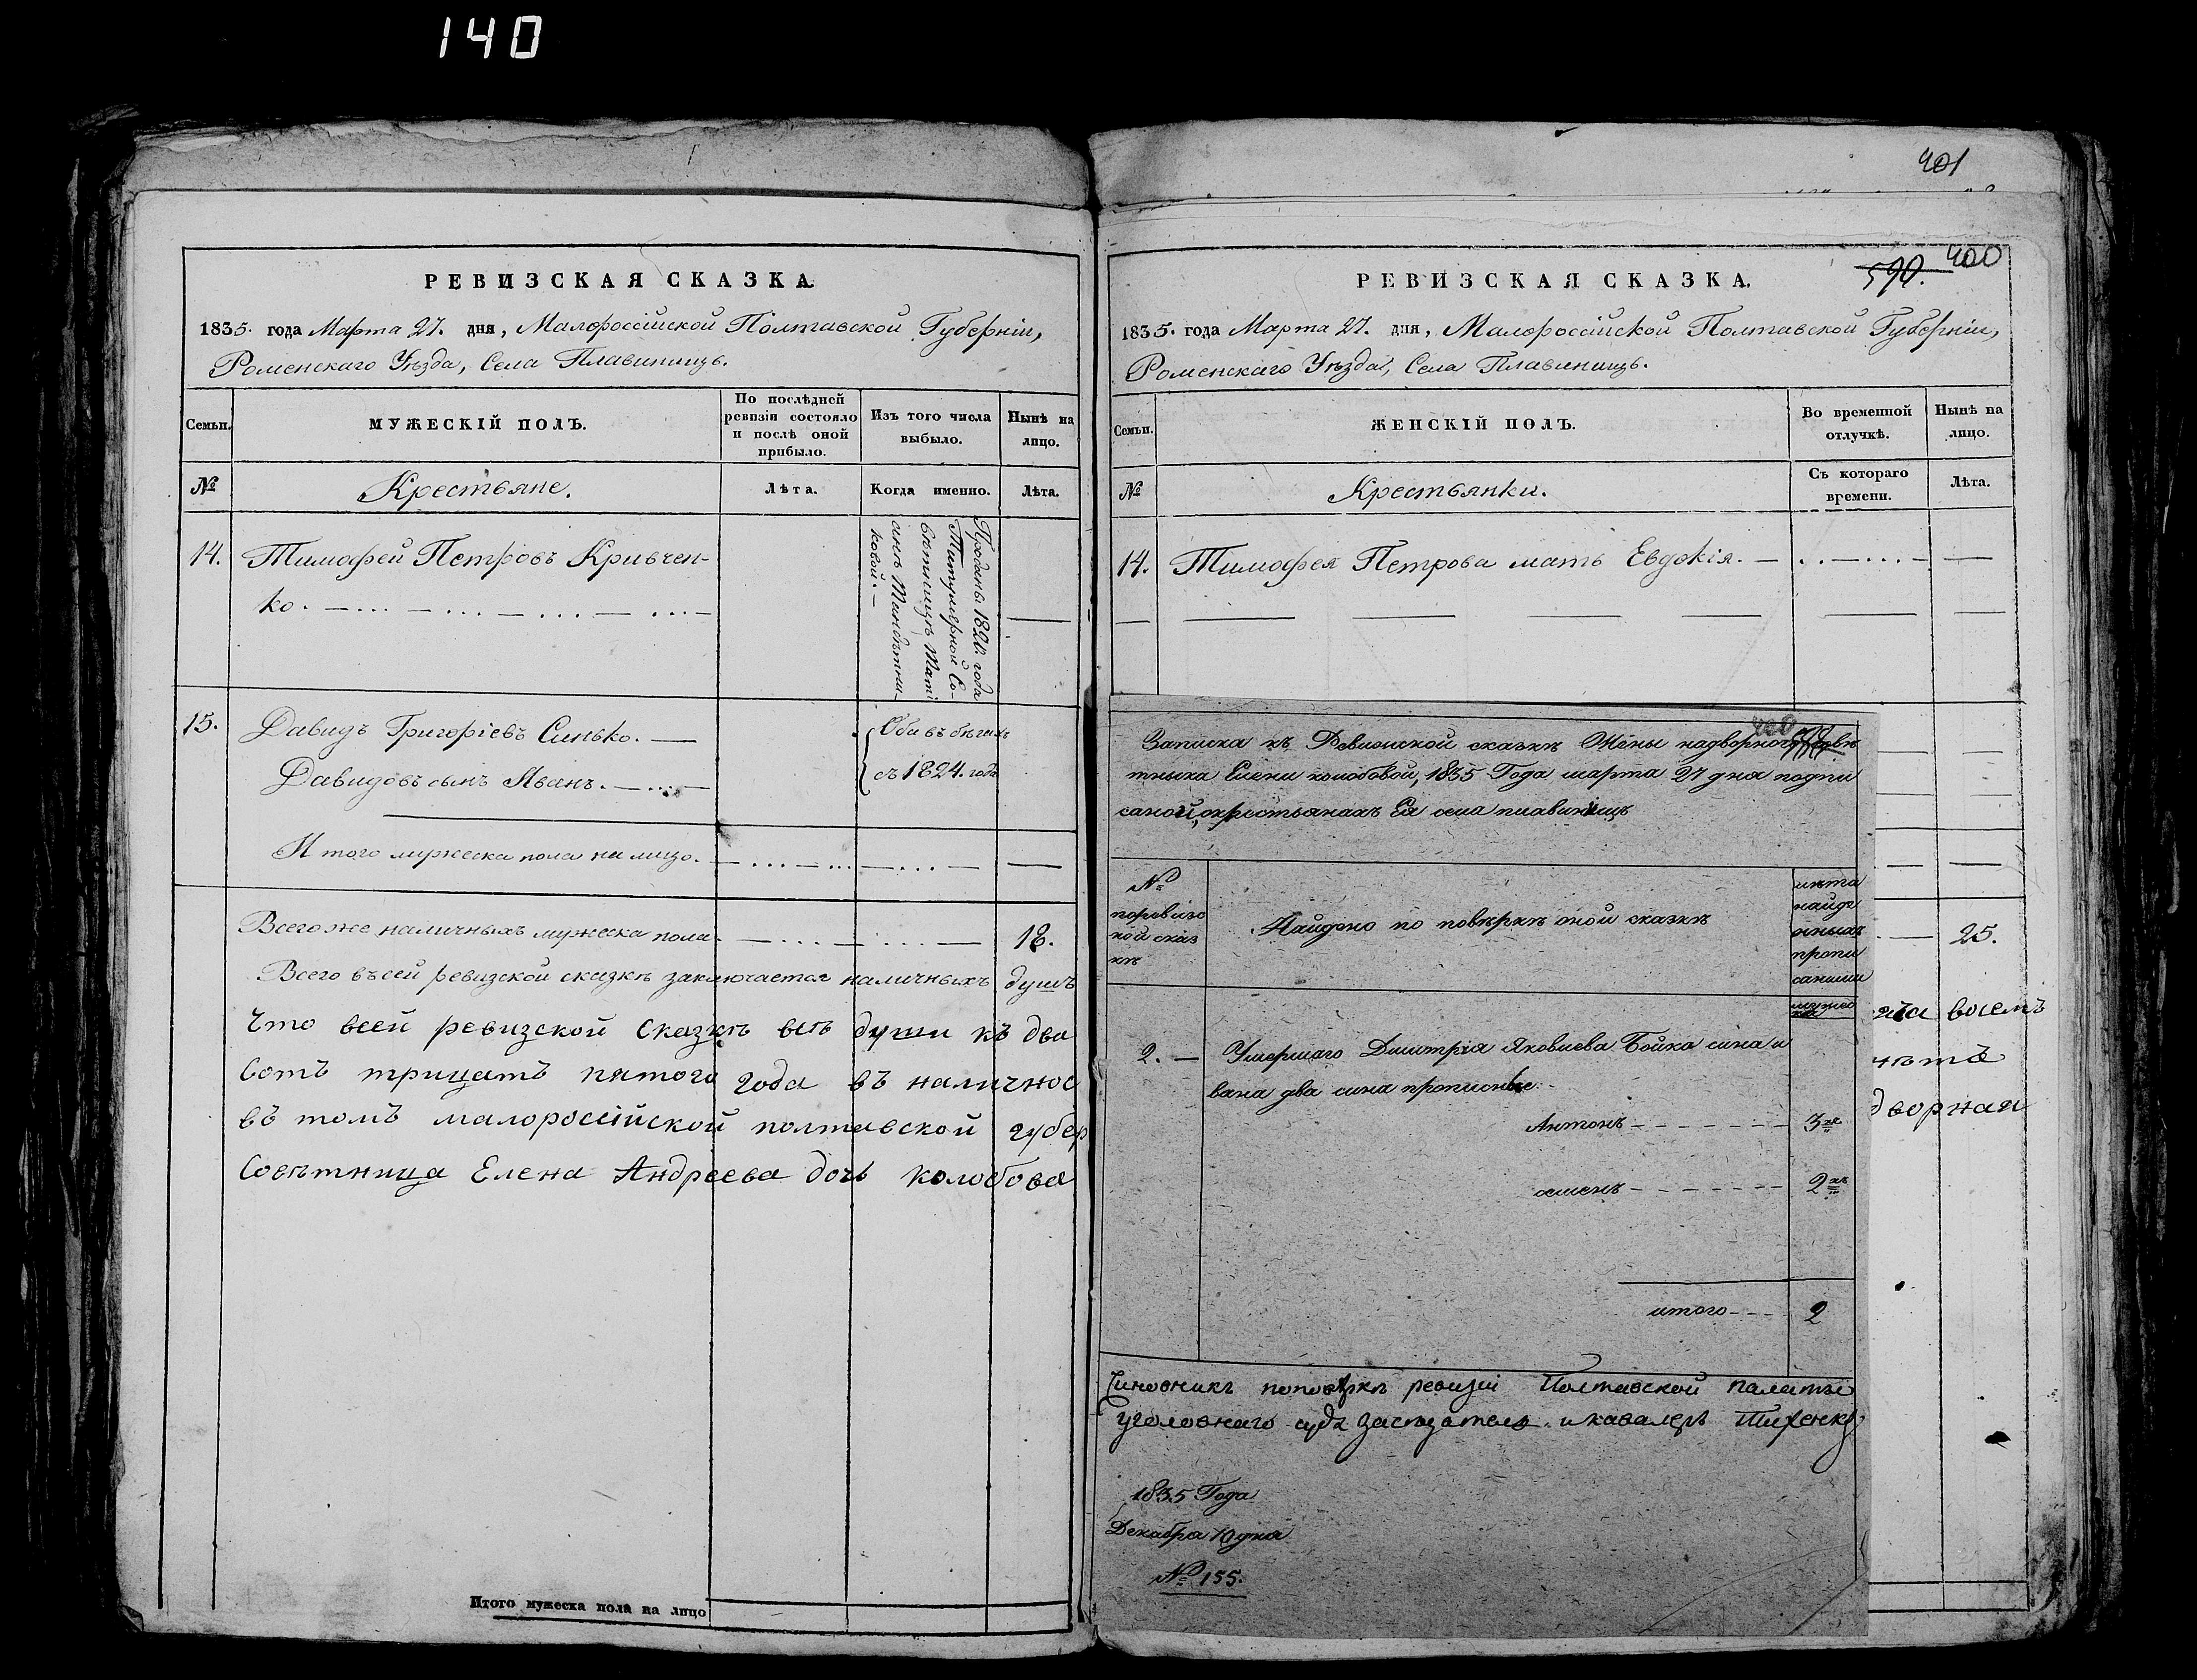 140
РЕВИЗСКАЯ СКАЗКА.
1835. года Марта 27. дня, Малороссійской Полтавской Губерніи,
Роменскаго Уѣзда, Села Плавинищъ.
Семьи. МУЖЕСКІЙ ПОЛЪ. По послѣдней ревизіи состояло и послѣ оной прибыло. Изъ того числа выбыло. Нынѣ на лицо.
№ Крестьяне. Лѣта. Когда именно. Лѣта.
14. Тимофей Петровъ Кривчен-
ко.
Проданы 1820. года
Титулярной Со-
вѣтницѣ
ковой.
15. Давидъ Григоріевъ Синько.
Давидовъ сынъ Иванъ.
Оба въ бѣгахъ
съ 1824. года
Итого мужеска пола на лицо.
Всего же наличныхъ мужеска пола. 18.
Всего въ сей ревизской сказкѣ заключается наличныхъ душъ
Что всей ревизской Сказкѣ всѣ души къ два
сотъ трицатъ пятого года въ наличнос
въ томъ малоросійской полтавской губер
Совѣтница Елена Андреева дочь колобова
Итого мужеска пола на лицо
401
400
590.
РЕВИЗСКАЯ СКАЗКА.
1835. года Марта 27. дня, Малороссійской Полтавской Губерніи,
Роменскаго Уѣзда, Села Плавинищъ.
Семьи. ЖЕНСКІЙ ПОЛЪ. Во временной отлучкѣ. Нынѣ на лицо.
№ Крестьянки. Съ котораго времени. Лѣта.
14. Тимофея Петрова мать Евдокія.
25.
восемъ
дворная
400
Записка къ Ревизской сказкѣ Жены надворного совѣ
тника Елены колобовой, 1835 Года марта 27 дня подпи
саной, окрестьянахъ Ея села плавинищъ
№ поревизской сказкѣ
Найдено по повѣркѣ оной сказкѣ
лѣта найденныхъ прописаними
мужес
2. — Умершаго Дмитрія Яковлева Бойка сина и
вана два сина прописные
Антонъ 3хъ
семенъ 2хъ
итого 2
Чиновникъ поповѣркѣ ревизіи Полтавской палаты
уголовнаго суда засѣдатель и кавалеръ
1835 Года
Декабря 10 дня
№ 155.